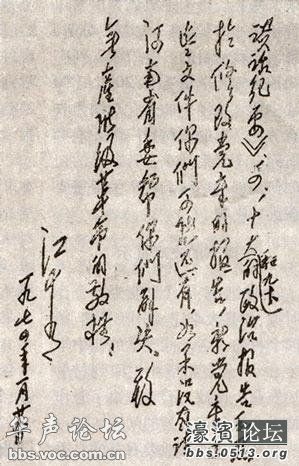 谈话纪要》、十大的政治报告和关
和九大
于修改党章的报告、新党章
这些文件你们可能还有,如果没有请
河南省委帮你们解决。致
无产阶级革命的敬礼!
江青
一九七四年一月
华声论坛
bbs.voc.com.cn
濠滨论坛
bbs.0513.org